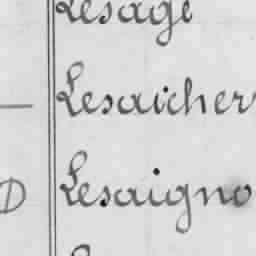 Lesage
Lesaicher
D Lesaigno